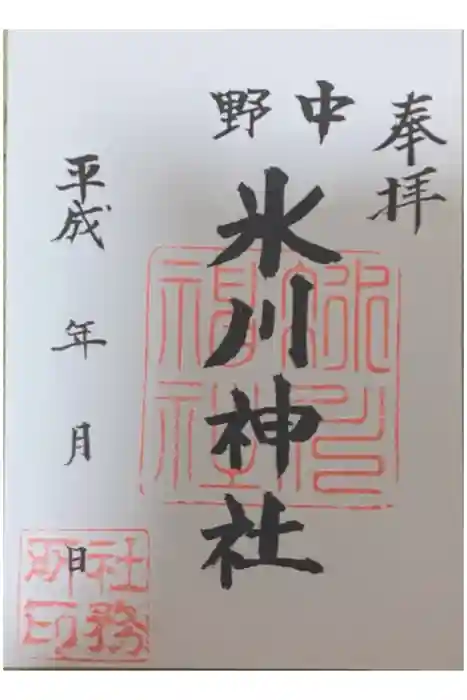 奉拝
中野
氷川神社
平成 年 月 日
氷川神社
社務所印